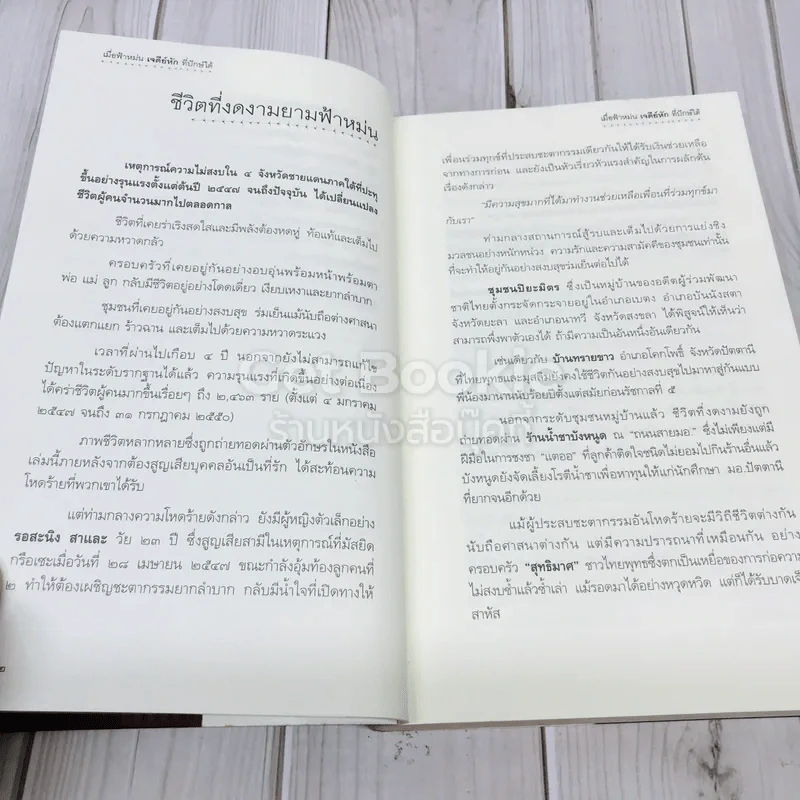 เมื่อฟ้าหม่น เจดีย์หัก ที่ปักษ์ใต้
ชีวิตที่งดงามยามฟ้าหม่น
เหตุการณ์ความไม่สงบใน ๔ จังหวัดชายแดนภาคใต้ที่ปะทุ
ขึ้นอย่างรุนแรงตั้งแต่ต้นปี ๒๕๔๗ จนถึงปัจจุบัน ได้เปลี่ยนแปลง
ชีวิตผู้คนจำนวนมากไปตลอดกาล
ชีวิตที่เคยร่าเริงสดใสและมีพลังต้องหดหู่ ท้อแท้และเต็มไป
ด้วยความหวาดกลัว
ครอบครัวที่เคยอยู่กันอย่างอบอุ่นพร้อมหน้าพร้อมตา
พ่อ แม่ ลูก กลับมีชีวิตอยู่อย่างโดดเดี่ยว เงียบเหงาและยากลำบาก
ชุมชนที่เคยอยู่กันอย่างสงบสุข ร่มเย็นแม้นับถือต่างศาสนา
ต้องแตกแยก ร้าวฉาน และเต็มไปด้วยความหวาดระแวง
เวลาที่ผ่านไปเกือบ ๔ ปี นอกจากยังไม่สามารถแก้ไข
ปัญหาในระดับรากฐานได้แล้ว ความรุนแรงที่เกิดขึ้นอย่างต่อเนื่อง
ได้คร่าชีวิตผู้คนมากขึ้นเรื่อยๆ ถึง ๒,๔๖๓ ราย (ตั้งแต่ ๔ มกราคม
๒๕๔๗ จนถึง ๓๑ กรกฎาคม ๒๕๕๐)
ภาพชีวิตหลากหลายซึ่งถูกถ่ายทอดผ่านตัวอักษรในหนังสือ
เล่มนี้ภายหลังจากต้องสูญเสียบุคคลอันเป็นที่รัก ได้สะท้อนความ
โหดร้ายที่พวกเขาได้รับ
แต่ท่ามกลางความโหดร้ายดังกล่าว ยังมีผู้หญิงตัวเล็กอย่าง
รอสะนิง สาและ วัย ๒๓ ปี ซึ่งสูญเสียสามีในเหตุการณ์ที่มัสยิด
กรือเซะเมื่อวันที่ ๒๘ เมษายน ๒๕๔๗ ขณะกำลังอุ้มท้องลูกคนที่
๒ ทำให้ต้องเผชิญชะตากรรมยากลำบาก กลับมีน้ำใจที่เปิดทางให้
๒
เมื่อฟ้าหม่น เจดีย์หัก ที่ปักษ์ใต้
เพื่อนร่วมทุกข์ที่ประสบชะตากรรมเดียวกันให้ได้รับเงินช่วยเหลือ
จากทางการก่อน และยังเป็นหัวเรี่ยวหัวแรงสำคัญในการผลักดัน
เรื่องดังกล่าว
"มีความสุขมากที่ได้มาทำงานช่วยเหลือเพื่อนที่ร่วมทุกข์มา
กับเรา"
ท่ามกลางสถานการณ์สู้รบและเต็มไปด้วยการแย่งชิง
มวลชนอย่างหนักหน่วง ความรักและความสามัคคีของชุมชนเท่านั้น
ที่จะทำให้อยู่กันอย่างสงบสุขร่มเย็นต่อไปได้
ชุมชนปิยะมิตร ซึ่งเป็นหมู่บ้านของอดีตผู้ร่วมพัฒนา
ชาติไทยตั้งกระจัดกระจายอยู่ในอำเภอเบตง อำเภอบันนังสตา
จังหวัดยะลา และอำเภอนาทวี จังหวัดสงขลา ได้พิสูจน์ให้เห็นว่า
สามารถพึ่งพาตัวเองได้ ถ้ามีความเป็นอันหนึ่งอันเดียวกัน
เช่นเดียวกับ บ้านทรายขาว อำเภอโคกโพธิ์ จังหวัดปัตตานี
ที่ไทยพุทธและมุสลิมยังคงใช้ชีวิตกันอย่างสงบสุขไปมาหาสู่กันแบบ
พี่น้องมานานนับร้อยปีตั้งแต่สมัยก่อนรัชกาลที่ ๕
นอกจากระดับชุมชนหมู่บ้านแล้ว ชีวิตที่งดงามยังถูก
ถ่ายทอดผ่าน ร้านน้ำชาบังหนูด ณ "ถนนสายมอ." ซึ่งไม่เพียงแต่มี
ฝีมือในการชงชา "แตออ" ที่ลูกค้าติดใจชนิดไม่ยอมไปกินร้านอื่นแล้ว
บังหนูดยังจัดเลี้ยงโรตีน้ำชาเพื่อหาทุนให้แก่นักศึกษา มอ.ปัตตานี
ที่ยากจนอีกด้วย
แม้ผู้ประสบชะตากรรมอันโหดร้ายจะมีวิถีชีวิตต่างกัน
นับถือศาสนาต่างกัน แต่มีความปรารถนาที่เหมือนกัน อย่าง
ครอบครัว "สุทธิมาศ" ชาวไทยพุทธซึ่งตกเป็นเหยื่อของการก่อความ
ไม่สงบซ้ำแล้วซ้ำเล่า แม้รอดมาได้อย่างหวุดหวิด แต่ก็ได้รับบาดเจ็บ
สาหัส
ร้านหนังสือบุ๊คคี่